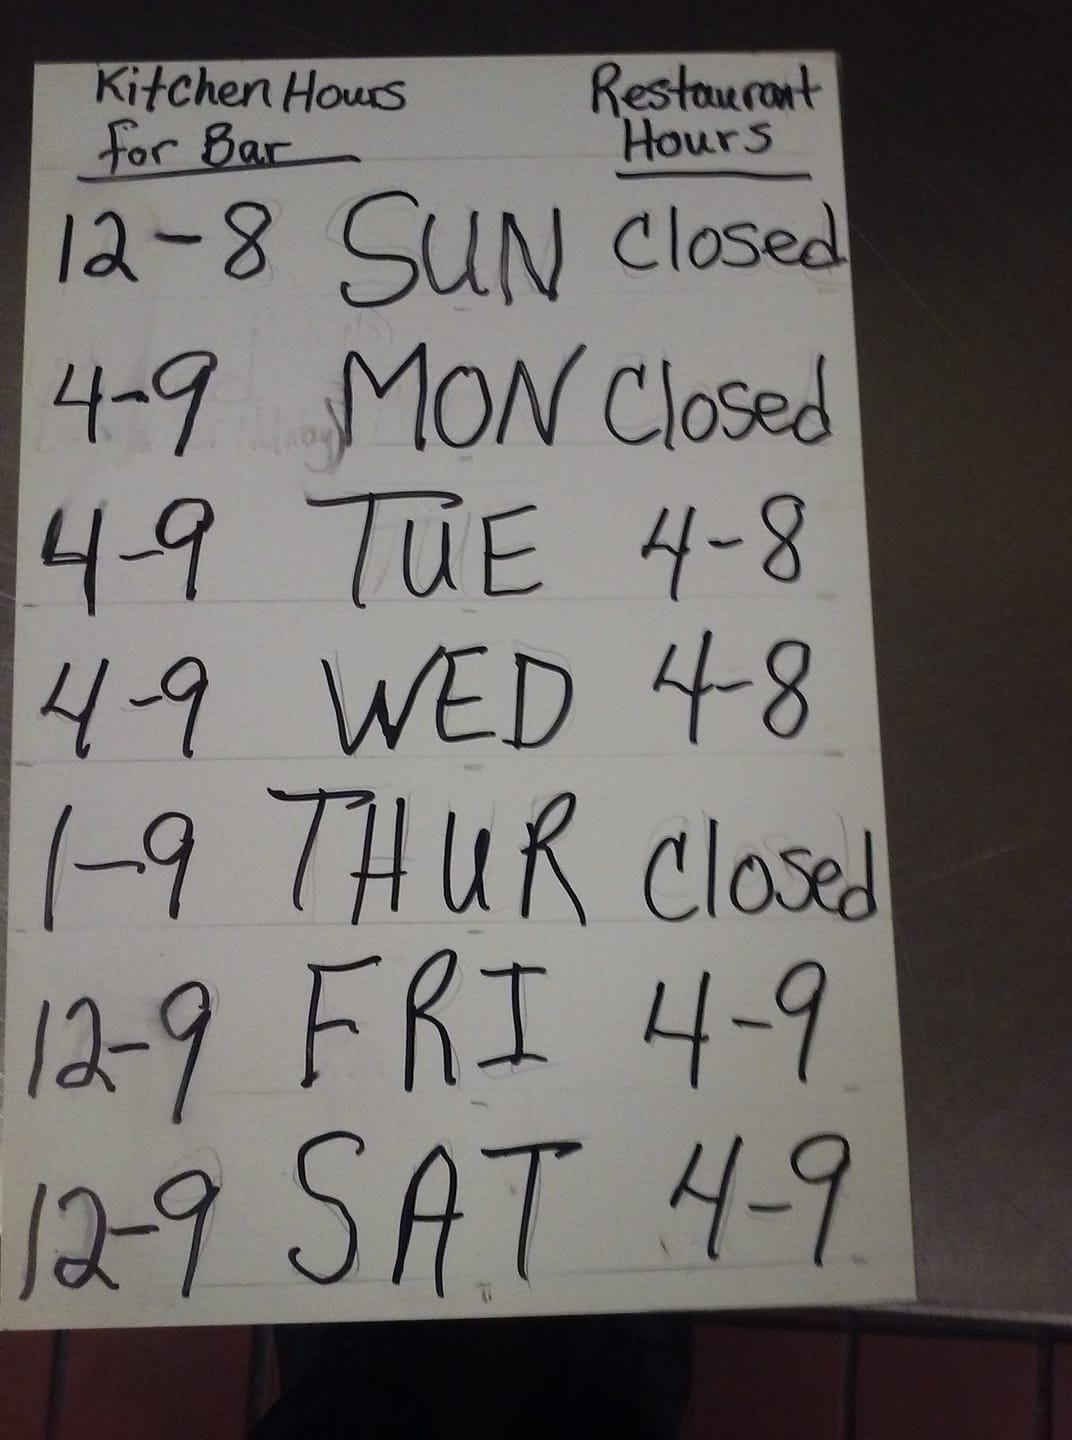 Kitchen Hours
for Bar
Restaurant
Hours
12-8 SUN Closed
4-9 MON Closed
4-9 TUE 4-8
4-9 WED 4-8
1-9 THUR Closed
12-9 FRI 4-9
12-9 SAT 4-9